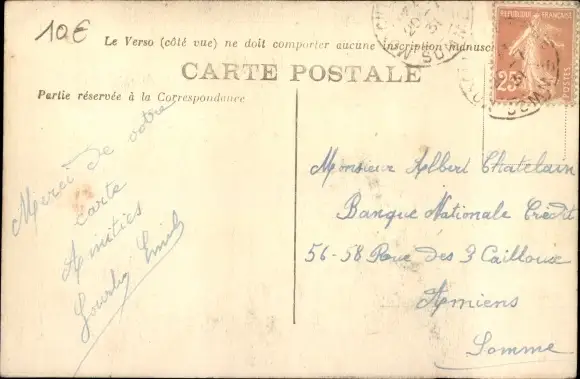 10€
Le Verso (côté vue) ne doit comporter aucune inscription manusc
CARTE POSTALE
Partie réservée à la Correspondance
REPUBLIQUE FRANÇAISE
25
POSTES
Merci de votre
carte
Amitiés
Monsieur Albert Chatelain
Banque Nationale Crédit
56-58 Rue des 3 Cailloux
Amiens
Somme